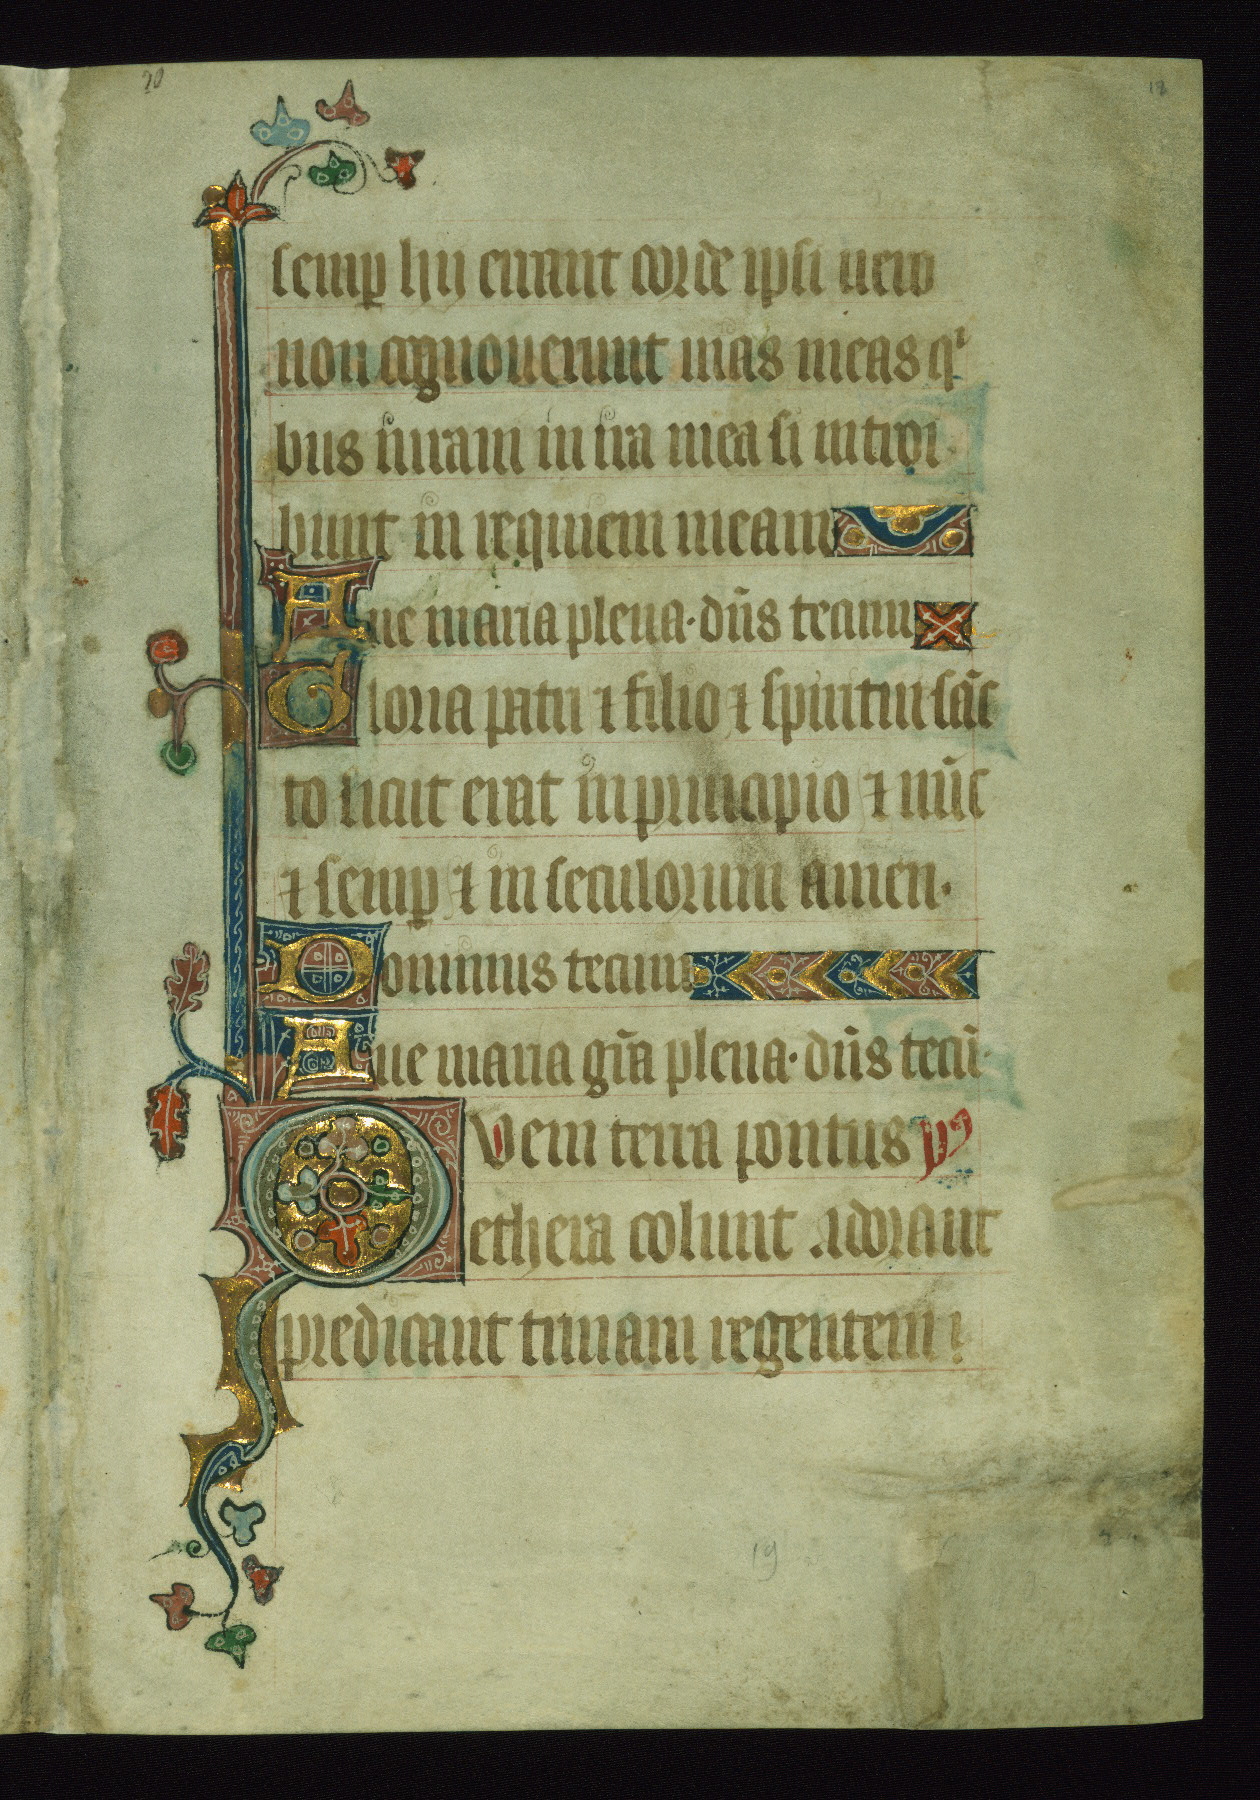 20
semꝑ hij errant corde ipsi uero
non cognouerunt uias meas qⁱ
bus iuraui in ira mea si introi
bunt in requiem meam
Aue maria plena· dñs tecum
Gloria patri ⁊ filio ⁊ spiritui sãc
to sicut erat in principio ⁊ nũc
⁊ semꝑ ⁊ in seculorum amen·
Dominus tecum
Aue maria gr̃a plena· dñs tecũ·
Quem terra pontus
ethera colunt adorant
predicant trinam regentem
19